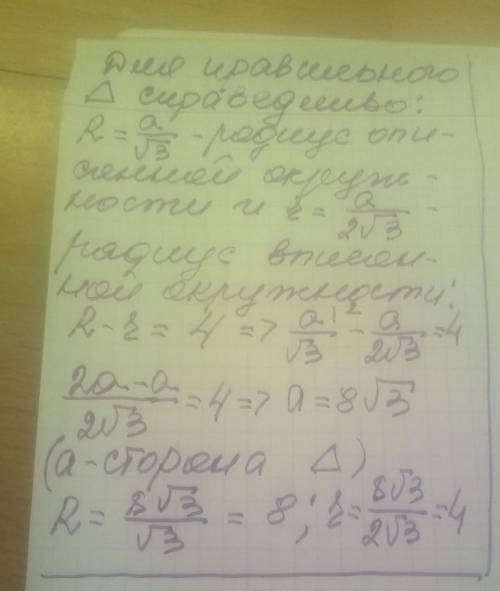 Для правильного
△ справедливо:
R = a/√3 - радиус опи-
санной окруж-
ности и r = a/2√3 -
радиус вписан-
ной окружности.
R - r = 4 => a¹²/√3 - a/2√3 = 4
2a - a/2√3 = 4 => a = 8√3
(a - сторона △)
R = 8√3/√3 = 8; r = 8√3/2√3 = 4